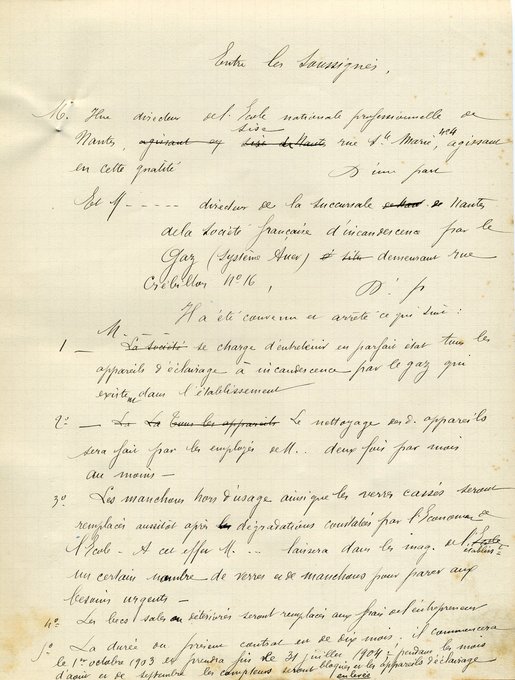 Entre les soussignés,
M. Hue directeur de l'Ecole nationale professionnelle de
sise
Nantes, agissant eq sise de Nants rue Ste Marie, agissant
en cette qualité D'une part
Et M - - - - - directeur de la succursale de Nantes
de la société française d'incandescence par le
Gaz (Système Auer) demeurant rue
Crébillon N° 16, D' p
Il a été convenu et arrêté ce qui suit :
M. - - -
1 - La société se charge d'entretenir en parfait état tous les
appareils d'éclairage à incandescence par le gaz qui
existent dans l'établissement
2° - La La Tous les appareils Le nettoyage desd. appareils
sera fait par les employés de M.. deux fois par mois
au moins -
3° Les manchons hors d'usage ainsi que les verres cassés seront
remplacés aussitôt après les dégradations constatées par l'Econome de
l'Ecole - A cet effet M. - .. laissera dans les mag. de l'Ecole
établisst
un certain nombre de verres et de manchons pour parer aux
besoins urgents -
4° Les becs salis ou détériorés seront remplacés aux frais de l'entrepreneur
5° La durée du présent contrat est de dix mois. il commencera
le 1er octobre 1903 et prendra fin le 31 juillet 1904 - pendant les mois
d'août et de septembre les compteurs seront bloqués et les appareils d'éclairage
enlevés